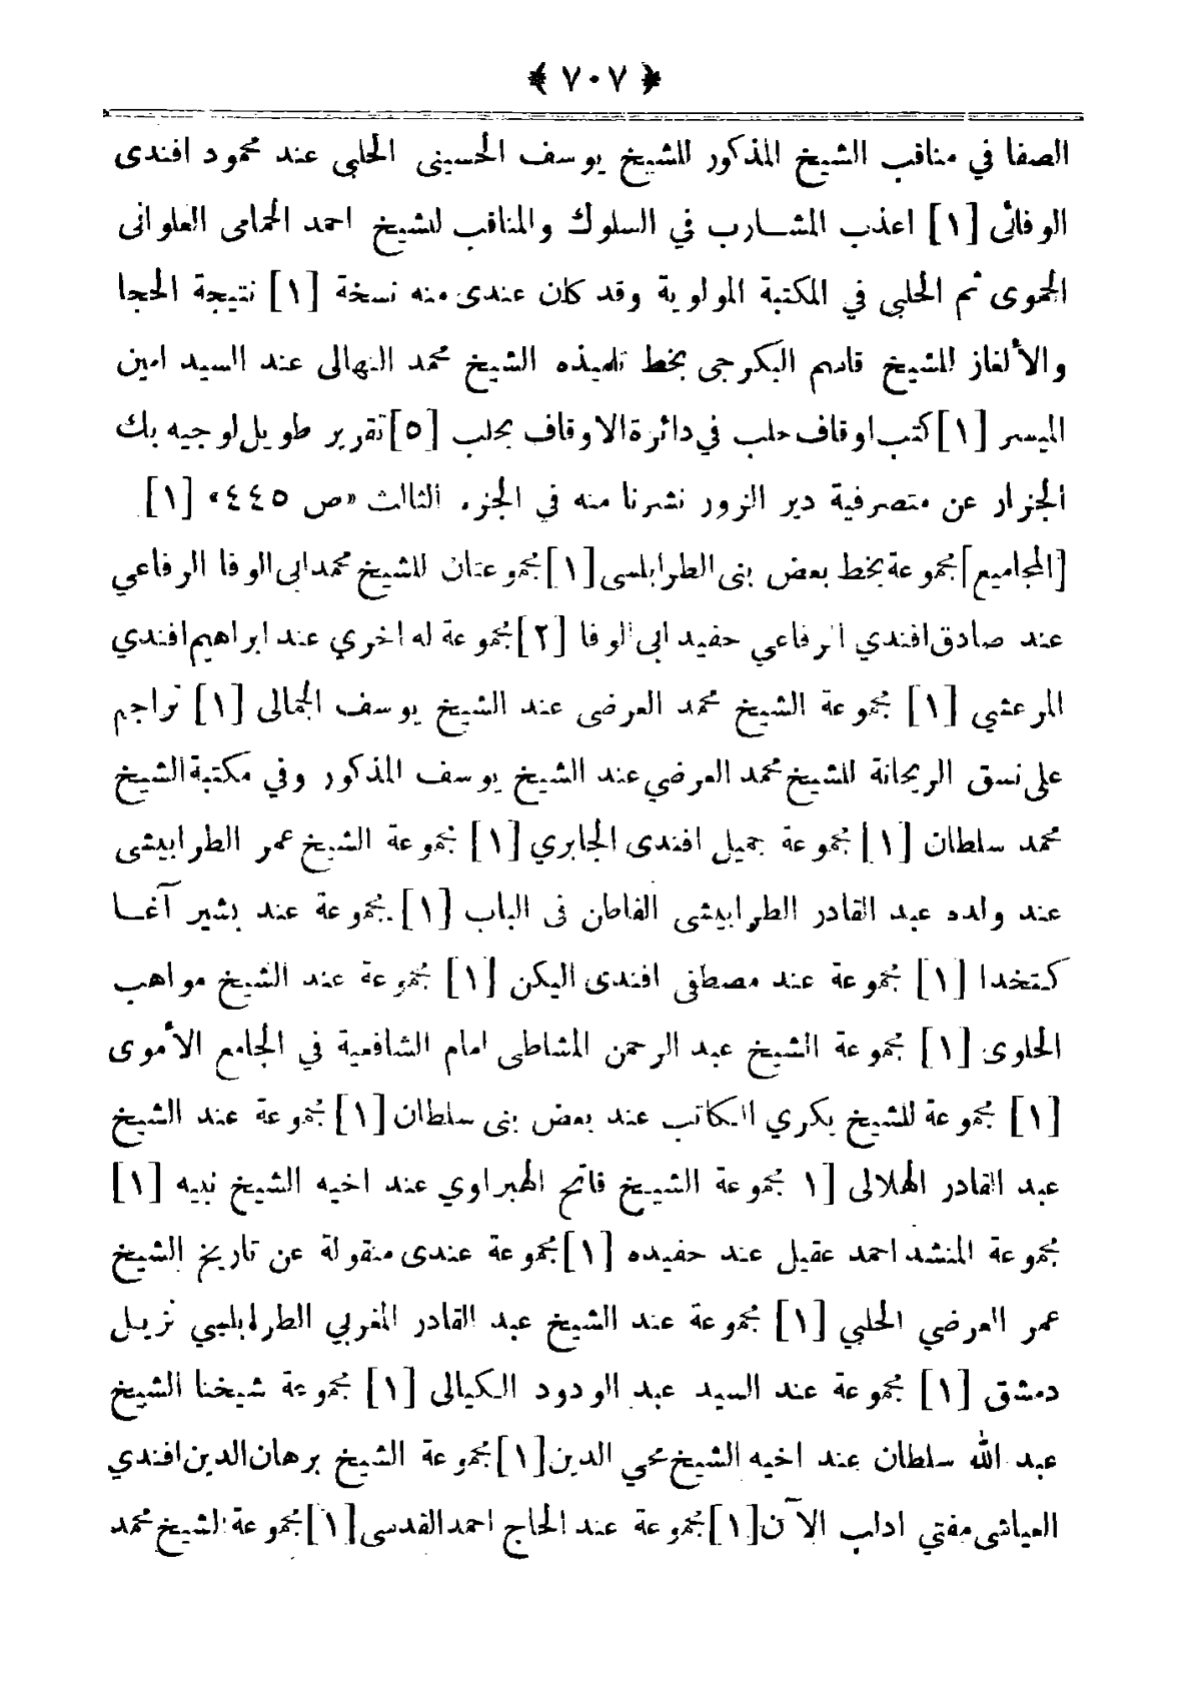 ﴿ ٧٠٧ ﴾
الصفا في مناقب الشيخ المذكور للشيخ يوسف الحسينى الحلبى عند محمود افندى
الوفائى [١] اعذب المشــارب في السلوك والمناقب للشيخ احمد الحمامى العلوانى
الحموى ثم الحلبى في المكتبة المولوية وقد كان عندى منه نسخة [١] نتيجة الحجا
والألغاز للشيخ قاسم البكرجى بخط تلميذه الشيخ محمد النهالى عند السيد امين
الميسر [١] كتب اوقاف حلب في دائرة الاوقاف بحلب [٥] تقرير طويل لوجيه بك
الجزار عن متصرفية دير الزور نشرنا منه في الجزء الثالث «ص ٤٤٥» [١]
[المجاميع] مجموعة بخط بعض بنى الطرابلسى [١] مجموعتان للشيخ محمد ابى الوفا الرفاعي
عند صادق افندي الرفاعي حفيد ابى الوفا [٢] مجموعة له اخري عند ابراهيم افندي
المرعشي [١] مجموعة الشيخ محمد العرضى عند الشيخ يوسف الجمالى [١] تراجم
على نسق الريحانة للشيخ محمد العرضي عند الشيخ يوسف المذكور وفي مكتبة الشيخ
محمد سلطان [١] مجموعة جميل افندى الجابري [١] مجموعة الشيخ عمر الطرابيشى
عند ولده عبد القادر الطرابيشى القاطن فى الباب [١] مجموعة عند بشير آغــا
كتخدا [١] مجموعة عند مصطفى افندى اليكن [١] مجموعة عند الشيخ مواهب
الحاوى [١] مجموعة الشيخ عبد الرحمن المشاطى امام الشافعية في الجامع الأموى
[١] مجموعة للشيخ بكري الكاتب عند بعض بنى سلطان [١] مجموعة عند الشيخ
عبد القادر الهلالى [١ مجموعة الشيـخ فاتح الهبراوي عند اخيه الشيخ نبيه [١]
مجموعة المنشد احمد عقيل عند حفيده [١] مجموعة عندى منقولة عن تاريخ الشيخ
عمر العرضي الحلبي [١] مجموعة عند الشيخ عبد القادر المغربي الطرابلسي نزيـل
دمشق [١] مجموعة عند السيد عبد الودود الكيالى [١] مجموعة شيخنا الشيخ
عبد الله سلطان عند اخيه الشيخ محي الدين [١] مجموعة الشيخ برهان الدين افندي
العياشى مفتي ادلب الآن [١] مجموعة عند الحاج احمد القدسى [١] مجموعة الشيخ محمد